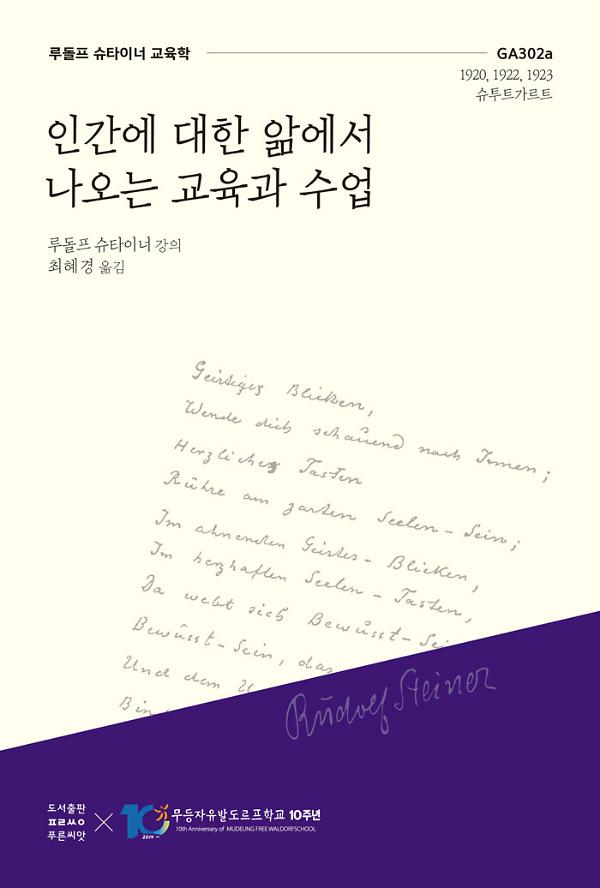 루돌프 슈타이너 교육학
GA302a
1920, 1922, 1923
슈투트가르트
인간에 대한 앎에서
나오는 교육과 수업
루돌프 슈타이너 강의
최혜경 옮김
Geistiges Blicken,
Wende dich schauend nach Innen;
Herzliches Tasten
Rühre am zarten Seelen-Sein;
Im ahnenden Geistes-Blicken,
Im herzhaften Seelen-Tasten,
Da webt sich Bewusst-Sei
Bewusst-Sein, das
Und dem U
Bin
Rudolf Steiner
도서출판
ㅍㄹㅆㅇ
푸른씨앗
10
2019
무등자유발도르프학교 10주년
10th Anniversary of MUDEUNG FREE WALDORFSCHOOL